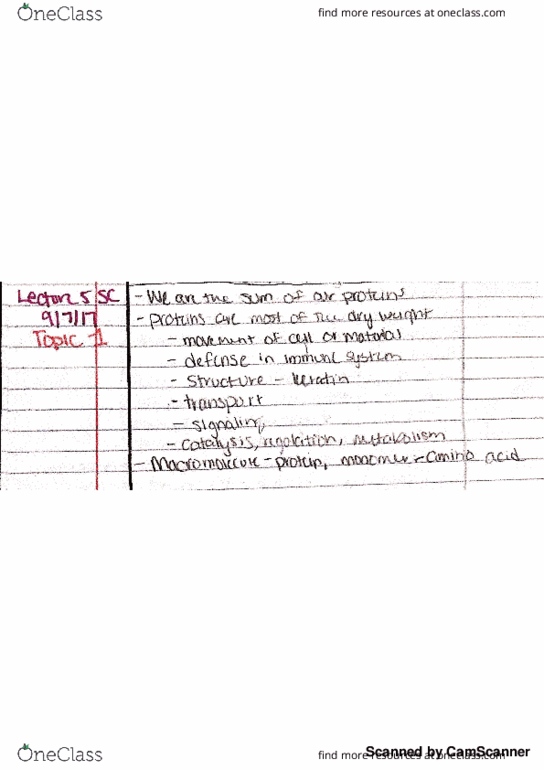 OneClass
find more resources at oneclass.com
Lecture 5 SC
9/7/17
Topic 1
- We are the sum of our proteins
- proteins are most of the dry weight
- movement of cell or material
- defense in immune system
- structure - keratin
- transport
- signaling
- catalysis, regulation, metabolism
- Macromolecule - protein, monomer - amino acid
OneClass
find more resources at oneclass.com
Scanned by CamScanner